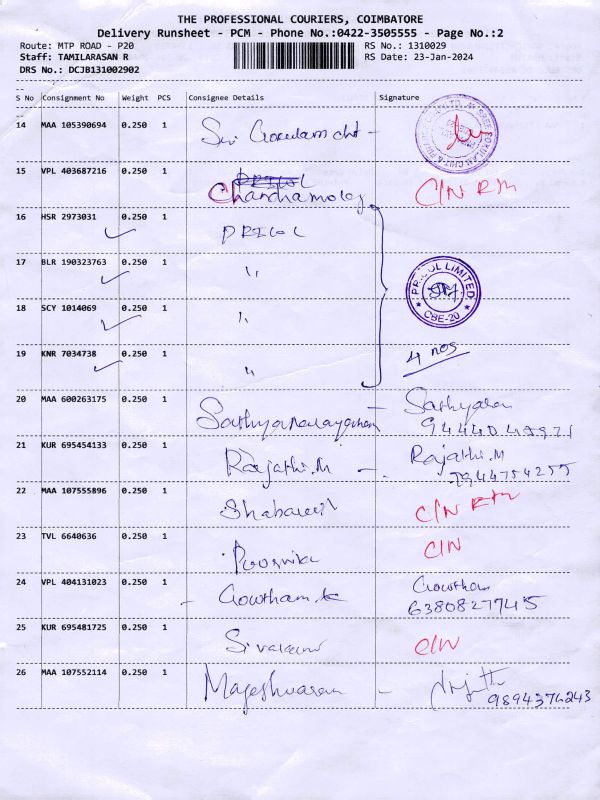 THE PROFESSIONAL COURIERS, COIMBATORE
Delivery Runsheet - PCM - Phone No.:0422-3505555 - Page No.:2
Route: MTP ROAD - P20 RS No.: 1310029
Staff: TAMILARASAN R RS Date: 23-Jan-2024
DRS No.: DCJB131002902
S No Consignment No Weight PCS Consignee Details Signature
14 MAA 105390694 0.250 1
15 VPL 403687216 0.250 1 PRICOL
C/N RM
16 HSR 2973031 0.250 1
PRICOL
17 BLR 190323763 0.250 1
"
PRICOL LIMITED
CBE-20
18 SCY 1014069 0.250 1
"
19 KNR 7034738 0.250 1
"
4 nos
20 MAA 600263175 0.250 1
Sathyanarayanan -
21 KUR 695454133 0.250 1
Rajathi.M - Rajathi.M
22 MAA 107555896 0.250 1
C/N RM
23 TVL 6640636 0.250 1
Poornika C/N
24 VPL 404131023 0.250 1
- Gowtham.k Gowtham
6380827745
25 KUR 695481725 0.250 1
C/N
26 MAA 107552114 0.250 1
Mageshwaran -
9894376243